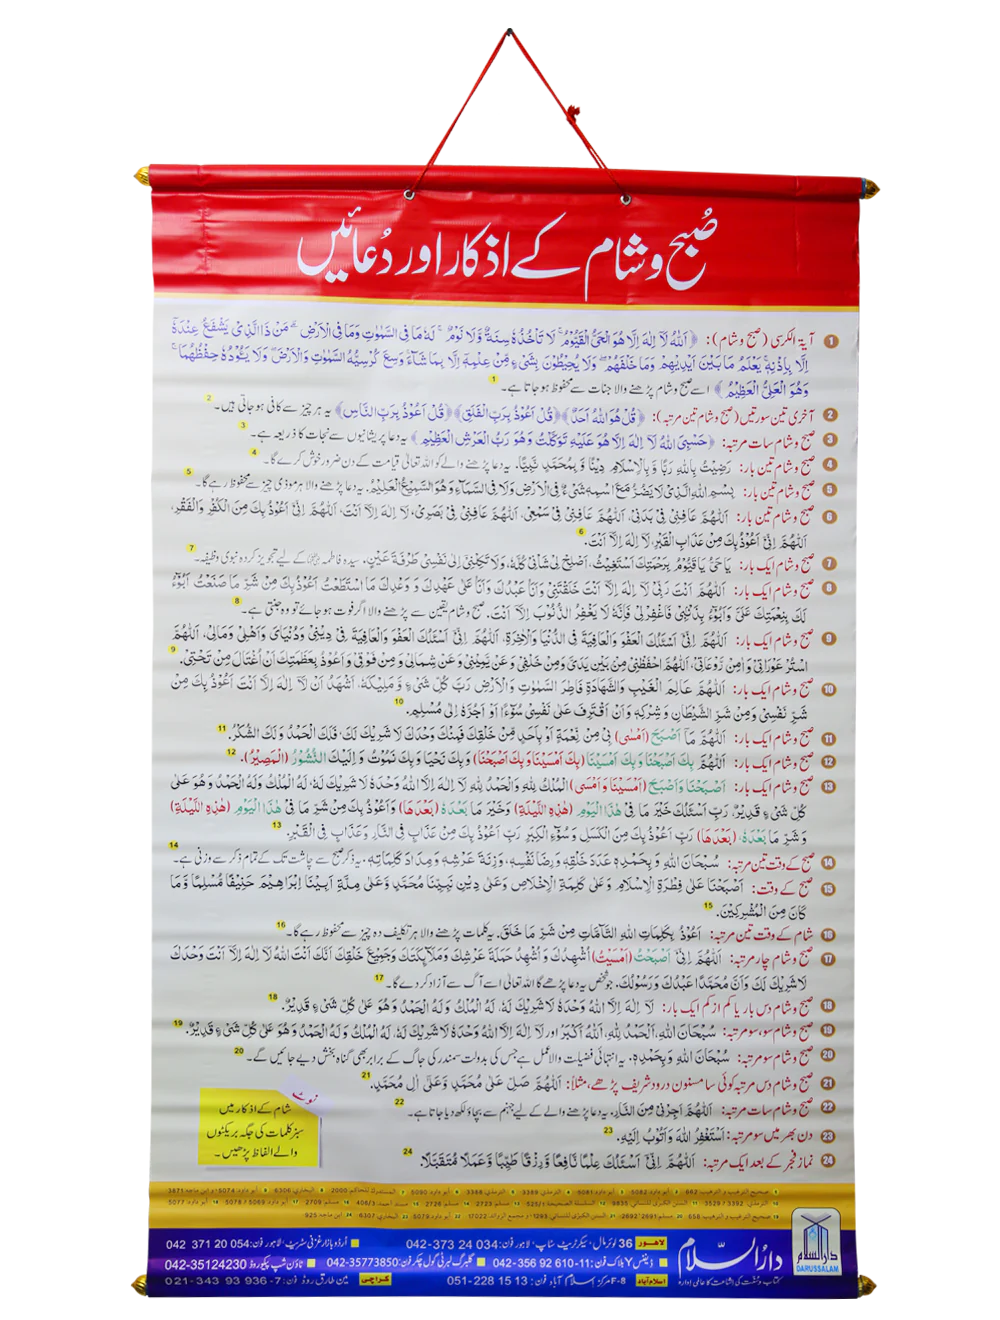 صُبح و شام کے اذکار اور دُعائیں
1 آیۃ الکرسی (صبح و شام): ﴿اَللّٰهُ لَآ اِلٰهَ اِلَّا هُوَ الْحَيُّ الْقَيُّوْمُ ۚ لَا تَاْخُذُهٗ سِنَةٌ وَّلَا نَوْمٌ ۭ لَهٗ مَا فِي السَّمٰوٰتِ وَمَا فِي الْاَرْضِ ۭ مَنْ ذَا الَّذِيْ يَشْفَعُ عِنْدَهٗٓ
اِلَّا بِاِذْنِهٖ ۭ يَعْلَمُ مَا بَيْنَ اَيْدِيْهِمْ وَمَا خَلْفَهُمْ ۚ وَلَا يُحِيْطُوْنَ بِشَيْءٍ مِّنْ عِلْمِهٖٓ اِلَّا بِمَا شَآءَ ۚ وَسِعَ كُرْسِيُّهُ السَّمٰوٰتِ وَالْاَرْضَ ۚ وَلَا يَـــــُٔوْدُهٗ حِفْظُهُمَا ۚ
وَهُوَ الْعَلِيُّ الْعَظِيْمُ﴾ اسے صبح و شام پڑھنے والا جنات سے محفوظ ہو جاتا ہے۔ 1
2 آخری تین سورتیں (صبح و شام تین مرتبہ): ﴿قُلْ هُوَ اللّٰهُ اَحَدٌ﴾ ﴿قُلْ اَعُوْذُ بِرَبِّ الْفَلَقِ﴾ ﴿قُلْ اَعُوْذُ بِرَبِّ النَّاسِ﴾ یہ ہر چیز سے کافی ہو جاتی ہیں۔ 2
3 صبح و شام سات مرتبہ: ﴿حَسْبِيَ اللّٰهُ لَآ اِلٰهَ اِلَّا هُوَ عَلَيْهِ تَوَكَّلْتُ وَهُوَ رَبُّ الْعَرْشِ الْعَظِيْمِ﴾ یہ دعا پریشانیوں سے نجات کا ذریعہ ہے۔ 3
4 صبح و شام تین بار: رَضِيْتُ بِاللّٰهِ رَبًّا وَّبِالْاِسْلَامِ دِيْنًا وَّبِمُحَمَّدٍ نَّبِيًّا. یہ دعا پڑھنے والے کو اللہ تعالیٰ قیامت کے دن ضرور خوش کرے گا۔ 4
5 صبح و شام تین بار: بِسْمِ اللّٰهِ الَّذِيْ لَا يَضُرُّ مَعَ اسْمِهٖ شَيْءٌ فِي الْاَرْضِ وَلَا فِي السَّمَآءِ وَهُوَ السَّمِيْعُ الْعَلِيْمُ. یہ دعا پڑھنے والا ہر موذی چیز سے محفوظ رہے گا۔ 5
6 صبح و شام تین بار: اَللّٰهُمَّ عَافِنِيْ فِيْ بَدَنِيْ، اَللّٰهُمَّ عَافِنِيْ فِيْ سَمْعِيْ، اَللّٰهُمَّ عَافِنِيْ فِيْ بَصَرِيْ، لَآ اِلٰهَ اِلَّا اَنْتَ، اَللّٰهُمَّ اِنِّيْٓ اَعُوْذُ بِكَ مِنَ الْكُفْرِ وَالْفَقْرِ،
اَللّٰهُمَّ اِنِّيْٓ اَعُوْذُ بِكَ مِنْ عَذَابِ الْقَبْرِ، لَآ اِلٰهَ اِلَّا اَنْتَ. 6
7 صبح و شام ایک بار: يَا حَيُّ يَا قَيُّوْمُ بِرَحْمَتِكَ اَسْتَغِيْثُ، اَصْلِحْ لِيْ شَاْنِيْ كُلَّهٗ، وَلَا تَكِلْنِيْٓ اِلٰى نَفْسِيْ طَرْفَةَ عَيْنٍ. سیدہ فاطمہ کے لیے تجویز کردہ نبوی وظیفہ۔ 7
8 صبح و شام ایک بار: اَللّٰهُمَّ اَنْتَ رَبِّيْ لَآ اِلٰهَ اِلَّآ اَنْتَ خَلَقْتَنِيْ وَاَنَا عَبْدُكَ وَاَنَا عَلٰى عَهْدِكَ وَوَعْدِكَ مَا اسْتَطَعْتُ اَعُوْذُ بِكَ مِنْ شَرِّ مَا صَنَعْتُ اَبُوْٓءُ
لَكَ بِنِعْمَتِكَ عَلَيَّ وَاَبُوْٓءُ بِذَنْبِيْ فَاغْفِرْ لِيْ فَاِنَّهٗ لَا يَغْفِرُ الذُّنُوْبَ اِلَّآ اَنْتَ. صبح و شام یقین سے پڑھنے والا اگر فوت ہو جائے تو وہ جنتی ہے۔ 8
9 صبح و شام ایک بار: اَللّٰهُمَّ اِنِّيْٓ اَسْئَلُكَ الْعَفْوَ وَالْعَافِيَةَ فِي الدُّنْيَا وَالْاٰخِرَةِ، اَللّٰهُمَّ اِنِّيْٓ اَسْئَلُكَ الْعَفْوَ وَالْعَافِيَةَ فِيْ دِيْنِيْ وَدُنْيَايَ وَاَهْلِيْ وَمَالِيْ، اَللّٰهُمَّ
اسْتُرْ عَوْرَاتِيْ وَاٰمِنْ رَّوْعَاتِيْ، اَللّٰهُمَّ احْفَظْنِيْ مِنْۢ بَيْنِ يَدَيَّ وَمِنْ خَلْفِيْ وَعَنْ يَّمِيْنِيْ وَعَنْ شِمَالِيْ وَمِنْ فَوْقِيْ وَاَعُوْذُ بِعَظَمَتِكَ اَنْ اُغْتَالَ مِنْ تَحْتِيْ. 9
10 صبح و شام ایک بار: اَللّٰهُمَّ عَالِمَ الْغَيْبِ وَالشَّهَادَةِ فَاطِرَ السَّمٰوٰتِ وَالْاَرْضِ رَبَّ كُلِّ شَيْءٍ وَّمَلِيْكَهٗ، اَشْهَدُ اَنْ لَّآ اِلٰهَ اِلَّآ اَنْتَ اَعُوْذُ بِكَ مِنْ
شَرِّ نَفْسِيْ وَمِنْ شَرِّ الشَّيْطَانِ وَشِرْكِهٖ وَاَنْ اَقْتَرِفَ عَلٰى نَفْسِيْ سُوْٓءًا اَوْ اَجُرَّهٗٓ اِلٰى مُسْلِمٍ. 10
11 صبح و شام ایک بار: اَللّٰهُمَّ مَآ اَصْبَحَ (اَمْسٰى) بِيْ مِنْ نِّعْمَةٍ اَوْ بِاَحَدٍ مِّنْ خَلْقِكَ فَمِنْكَ وَحْدَكَ لَا شَرِيْكَ لَكَ، فَلَكَ الْحَمْدُ وَلَكَ الشُّكْرُ. 11
12 صبح و شام ایک بار: اَللّٰهُمَّ بِكَ اَصْبَحْنَا وَبِكَ اَمْسَيْنَا (بِكَ اَمْسَيْنَا وَبِكَ اَصْبَحْنَا) وَبِكَ نَحْيَا وَبِكَ نَمُوْتُ وَاِلَيْكَ النُّشُوْرُ (الْمَصِيْرُ). 12
13 صبح و شام ایک بار: اَصْبَحْنَا وَاَصْبَحَ (اَمْسَيْنَا وَاَمْسَى) الْمُلْكُ لِلّٰهِ وَالْحَمْدُ لِلّٰهِ لَآ اِلٰهَ اِلَّا اللّٰهُ وَحْدَهٗ لَا شَرِيْكَ لَهٗ، لَهُ الْمُلْكُ وَلَهُ الْحَمْدُ وَهُوَ عَلٰى
كُلِّ شَيْءٍ قَدِيْرٌ، رَبِّ اَسْئَلُكَ خَيْرَ مَا فِيْ هٰذَا الْيَوْمِ (هٰذِهِ اللَّيْلَةِ) وَخَيْرَ مَا بَعْدَهٗ (بَعْدَهَا) وَاَعُوْذُ بِكَ مِنْ شَرِّ مَا فِيْ هٰذَا الْيَوْمِ (هٰذِهِ اللَّيْلَةِ)
وَشَرِّ مَا بَعْدَهٗ، (بَعْدَهَا) رَبِّ اَعُوْذُ بِكَ مِنَ الْكَسَلِ وَسُوْٓءِ الْكِبَرِ رَبِّ اَعُوْذُ بِكَ مِنْ عَذَابٍ فِي النَّارِ وَعَذَابٍ فِي الْقَبْرِ. 13
14 صبح کے وقت تین مرتبہ: سُبْحَانَ اللّٰهِ وَبِحَمْدِهٖ عَدَدَ خَلْقِهٖ وَرِضَا نَفْسِهٖ، وَزِنَةَ عَرْشِهٖ وَمِدَادَ كَلِمَاتِهٖ. یہ ذکر صبح سے چاشت تک کے تمام ذکر سے وزنی ہے۔ 14
15 صبح کے وقت: اَصْبَحْنَا عَلٰى فِطْرَةِ الْاِسْلَامِ وَعَلٰى كَلِمَةِ الْاِخْلَاصِ وَعَلٰى دِيْنِ نَبِيِّنَا مُحَمَّدٍ وَّعَلٰى مِلَّةِ اَبِيْنَآ اِبْرَاهِيْمَ حَنِيْفًا مُّسْلِمًا وَّمَا
كَانَ مِنَ الْمُشْرِكِيْنَ. 15
16 شام کے وقت تین مرتبہ: اَعُوْذُ بِكَلِمَاتِ اللّٰهِ التَّآمَّاتِ مِنْ شَرِّ مَا خَلَقَ. یہ کلمات پڑھنے والا ہر تکلیف دہ چیز سے محفوظ رہے گا۔ 16
17 صبح و شام چار مرتبہ: اَللّٰهُمَّ اِنِّيْٓ اَصْبَحْتُ (اَمْسَيْتُ) اُشْهِدُكَ وَاُشْهِدُ حَمَلَةَ عَرْشِكَ وَمَلَآئِكَتَكَ وَجَمِيْعَ خَلْقِكَ اَنَّكَ اَنْتَ اللّٰهُ لَآ اِلٰهَ اِلَّآ اَنْتَ وَحْدَكَ
لَا شَرِيْكَ لَكَ وَاَنَّ مُحَمَّدًا عَبْدُكَ وَرَسُوْلُكَ. جو شخص یہ دعا پڑھے گا اللہ تعالیٰ اسے آگ سے آزاد کر دے گا۔ 17
18 صبح و شام دس بار یا کم از کم ایک بار: لَآ اِلٰهَ اِلَّا اللّٰهُ وَحْدَهٗ لَا شَرِيْكَ لَهٗ، لَهُ الْمُلْكُ وَلَهُ الْحَمْدُ وَهُوَ عَلٰى كُلِّ شَيْءٍ قَدِيْرٌ. 18
19 صبح و شام سو، سو مرتبہ: سُبْحَانَ اللّٰهِ، اَلْحَمْدُ لِلّٰهِ، اَللّٰهُ اَكْبَرُ اور لَآ اِلٰهَ اِلَّا اللّٰهُ وَحْدَهٗ لَا شَرِيْكَ لَهٗ، لَهُ الْمُلْكُ وَلَهُ الْحَمْدُ وَهُوَ عَلٰى كُلِّ شَيْءٍ قَدِيْرٌ. 19
20 صبح و شام سو مرتبہ: سُبْحَانَ اللّٰهِ وَبِحَمْدِهٖ. یہ انتہائی فضیلت والا عمل ہے جس کی بدولت سمندر کی جاگ کے برابر بھی گناہ بخش دیے جائیں گے۔ 20
21 صبح و شام دس مرتبہ کوئی سا مسنون درود شریف پڑھے، مثلاً: اَللّٰهُمَّ صَلِّ عَلٰى مُحَمَّدٍ وَّعَلٰٓى اٰلِ مُحَمَّدٍ. 21
22 صبح و شام سات مرتبہ: اَللّٰهُمَّ اَجِرْنِيْ مِنَ النَّارِ. یہ دعا پڑھنے والے کے لیے جہنم سے بچاؤ لکھ دیا جاتا ہے۔ 22
23 دن بھر میں سو مرتبہ: اَسْتَغْفِرُ اللّٰهَ وَاَتُوْبُ اِلَيْهِ. 23
24 نماز فجر کے بعد ایک مرتبہ: اَللّٰهُمَّ اِنِّيْٓ اَسْئَلُكَ عِلْمًا نَافِعًا وَّرِزْقًا طَيِّبًا وَّعَمَلًا مُّتَقَبَّلًا. 24
نوٹ
شام کے اذکار میں
سبز کلمات کی جگہ بریکٹوں
والے الفاظ پڑھیں۔
دارُالسّلام
کتاب و سنت کی اشاعت کا عالمی ادارہ
دارالسلام
DARUSSALAM
لاہور 36 لوئر مال، سیکرٹریٹ سٹاپ، لاہور فون: 042-373 24 034 اُردو بازار غزنی سٹریٹ، لاہور فون: 042 371 20 054
ڈیفنس Y بلاک فون: 042-356 92 610-11 گلبرگ لبرٹی گول چکر فون: 042-35773850 ٹاؤن شپ پیکو روڈ 042-35124230
اسلام آباد F-8 مرکز اسلام آباد فون: 051-228 15 13 کراچی مین طارق روڈ فون: 021-343 93 936-7